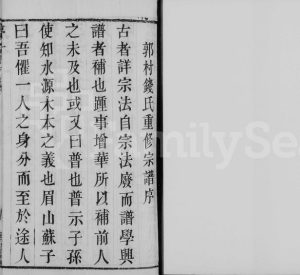 郭村錢氏重修宗譜序
古者詳宗法自宗法廢而譜學興
譜者補也踵事增華所以補前人
之未及也或又曰普也普示子孫
使知水源木本之義也眉山蘇子
曰吾懼一人之身分而至於途人
FamilySe